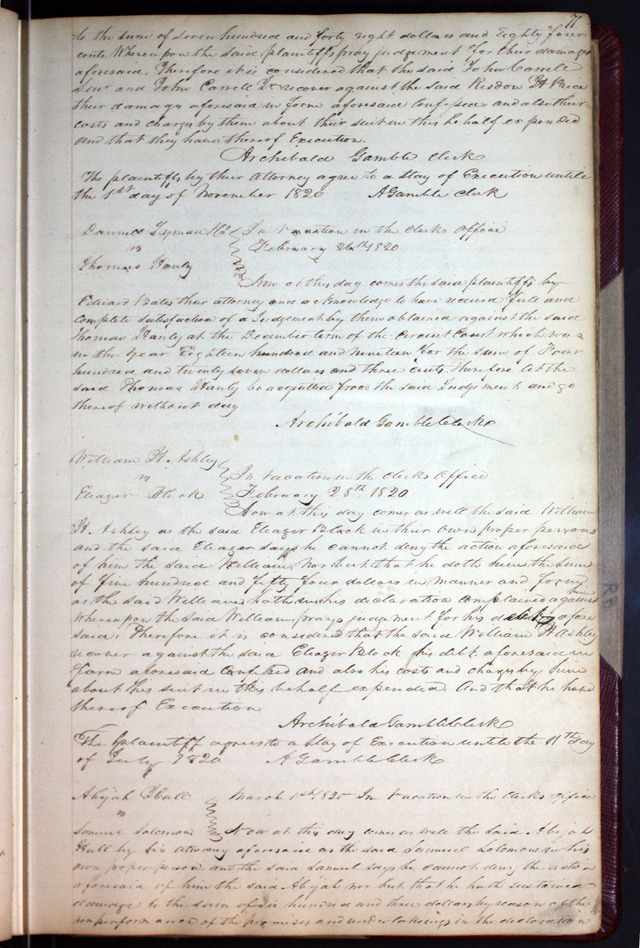 77
to the sum of seven hundred and forty eight dollars and Eighty four
cents Whereupon the said plaintiffs pray judgement for their damages
aforesaid. Therefore it is considered that the said John Carrell
Senr and John Carrell Jr recover against the said Risdon H Price
their damages aforesaid in form aforesaid confessed and also their
costs and charges by them about their suit in this behalf expended
and that they have thereof Execution.
Archibald Gamble Clerk
The plaintiffs by their Attorney agree to a stay of Execution untile
the 1st day of November 1820 A Gamble clerk
Lyman In vacation in the clerks office
vs February 26th 1820
Thomas Hanly
Now at this day comes the said plaintiffs by
Edward Bates their attorney and acknowledge to have received full and
complete satisfaction of a Judgement by them obtained against the said
Thomas Hanly at the December term of the circuit court which was
in the year Eighteen hundred and nineteen for the sum of Four
hundred and twenty seven dollars and three cents Therefore let the
said Thomas Hanly be acquitted from the said Judgement and go
thereof without day
Archibald Gamble Clerk
William H. Ashley
vs In vacation in the clerks office
Eleazer Block February 28th 1820
Now at this day comes as well the said William
H. Ashley as the said Eleazer Block in their own proper persons
and the said Eleazer says he cannot deny the action aforesaid
of him the said William, nor but that he doth owe him the sum
of Five hundred and fifty four dollars in manner and form
as the said William hath in his declaration complained against him
whereupon the said William prays judgment for his debt afore
said: Therefore it is considered that the said William H Ashley
recover against the said Eleazer Block his debt aforesaid in
form aforesaid confessed and also his costs and charges by him
about his suit in this behalf expended. And that he have
thereof Execution
Archibald Gamble Clerk
The plaintiff agrees to a stay of Execution untile the 11th day
of July 1820 A Gamble Clerk
Abijah Hull March 1st 1820 In vacation in the clerks office
vs
Samuel Solomon Now at this day comes as well the said Abijah
Hull by his attorney aforesaid as the said Samuel Solomon in his
own proper person and the said Samuel says he cannot deny the action
aforesaid of him the said Abijah nor but that he hath sustained
damage to the sum of six hundred and three dollars by reason of the
nonperformance of the promises and undertakings in the declaration